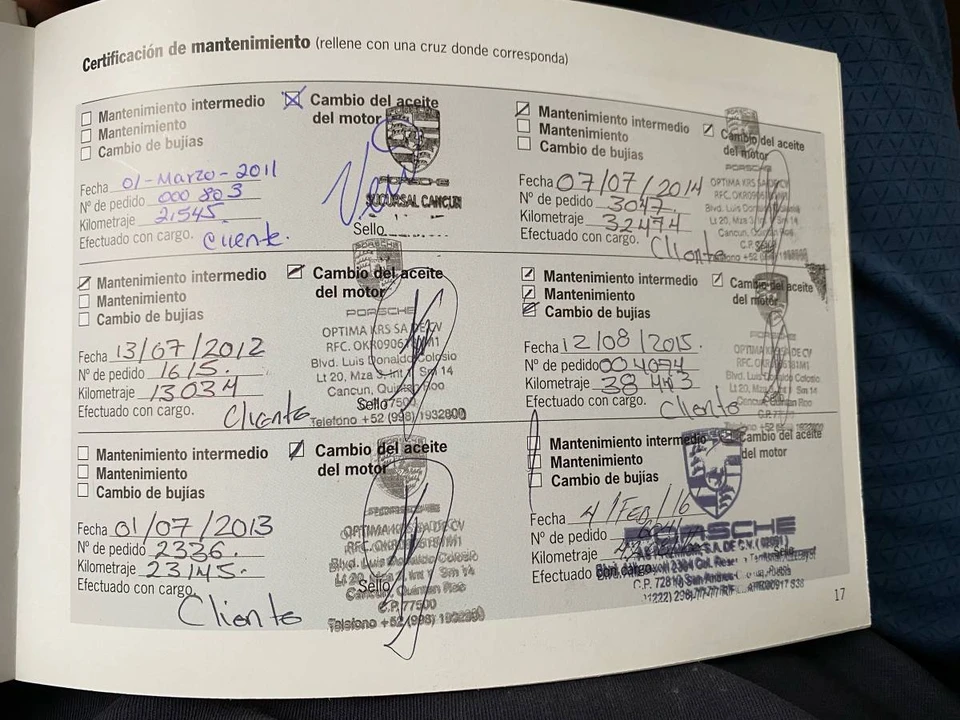 Certificación de mantenimiento (rellene con una cruz donde corresponda)
Mantenimiento intermedio
Mantenimiento
Cambio de bujías
Cambio del aceite
del motor
Fecha 01-Marzo-2011
Nº de pedido 000 803
Kilometraje 21545.
Efectuado con cargo. Cliente.
PORSCHE
SUCURSAL CANCUN
Sello
Mantenimiento intermedio
Mantenimiento
Cambio de bujías
Cambio del aceite
del motor
Fecha 13/07/2012
Nº de pedido 1615.
Kilometraje 13034
Efectuado con cargo. Cliente
PORSCHE
OPTIMA KRS SA DE CV
Blvd. Luis Donaldo Colosio
Lt 20, Mza 3, Int 1 Sm 14
Cancun, Quintan Roo
Sello 77500
Telefono +52 (998) 1932800
Mantenimiento intermedio
Mantenimiento
Cambio de bujías
Cambio del aceite
del motor
Fecha 01/07/2013
Nº de pedido 2336.
Kilometraje 23145.
Efectuado con cargo.
Cliente
PORSCHE
OPTIMA KRS SA DE CV
Blvd. Luis Donaldo Colosio
Sm 14
Sello
Cancun, Quintan Roo
C.P. 77500
Telefono +52 (998) 1932800
Mantenimiento intermedio
Mantenimiento
Cambio de bujías
Cambio del aceite
del motor
Fecha 07/07/2014
Nº de pedido 3047.
Kilometraje 32474
Efectuado con cargo. Cliente
PORSCHE
OPTIMA KRS SA DE CV
Blvd. Luis Donaldo
Lt 20, Mza 3, Sm 14
Cancun, Quintan Roo
C.P.
Mantenimiento intermedio
Mantenimiento
Cambio de bujías
Cambio del aceite
del motor
Fecha 12/08/2015.
Nº de pedido 004094
Kilometraje 38 443
Efectuado con cargo. Cliente
OPTIMA KRS SA DE CV
Blvd. Luis Donaldo Colosio
Lt 20, Sm 14
Cancun, Quintan Roo
Mantenimiento intermedio
Mantenimiento
Cambio de bujías
Cambio del aceite
del motor
Fecha 4/Feb/16
Nº de pedido
Kilometraje
Efectuado con cargo
PORSCHE
Sello
17